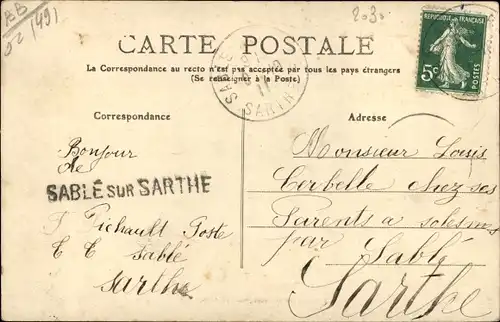 CARTE POSTALE
La Correspondance au recto n'est pas acceptée par tous les pays étrangers
(Se renseigner à la Poste)
RÉPUBLIQUE FRANÇAISE
5c
SARTHE
Correspondance
Adresse
Bonjour
de
SABLÉ SUR SARTHE
Pichault Poste
Sablé
Sarthe
Monsieur Louis
Cerbelle chez ses
Parents a solesmes
par Sablé
Sarthe